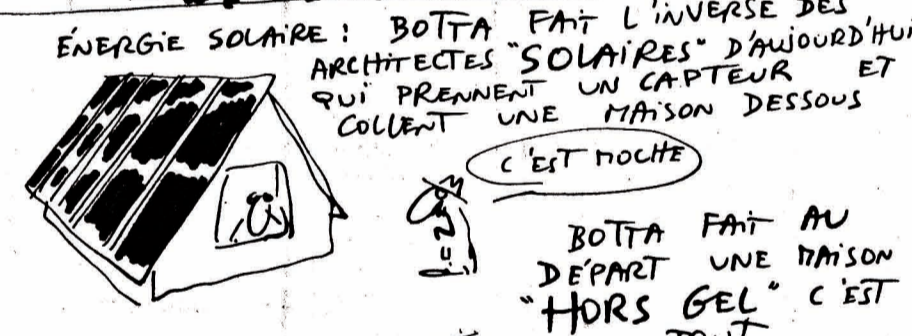 ÉNERGIE SOLAIRE : BOTTA FAIT L'INVERSE DES
ARCHITECTES "SOLAIRES" D'AUJOURD'HUI
QUI PRENNENT UN CAPTEUR ET
COLLENT UNE MAISON DESSOUS
C'EST MOCHE
BOTTA FAIT AU
DÉPART UNE MAISON
"HORS GEL" C'EST